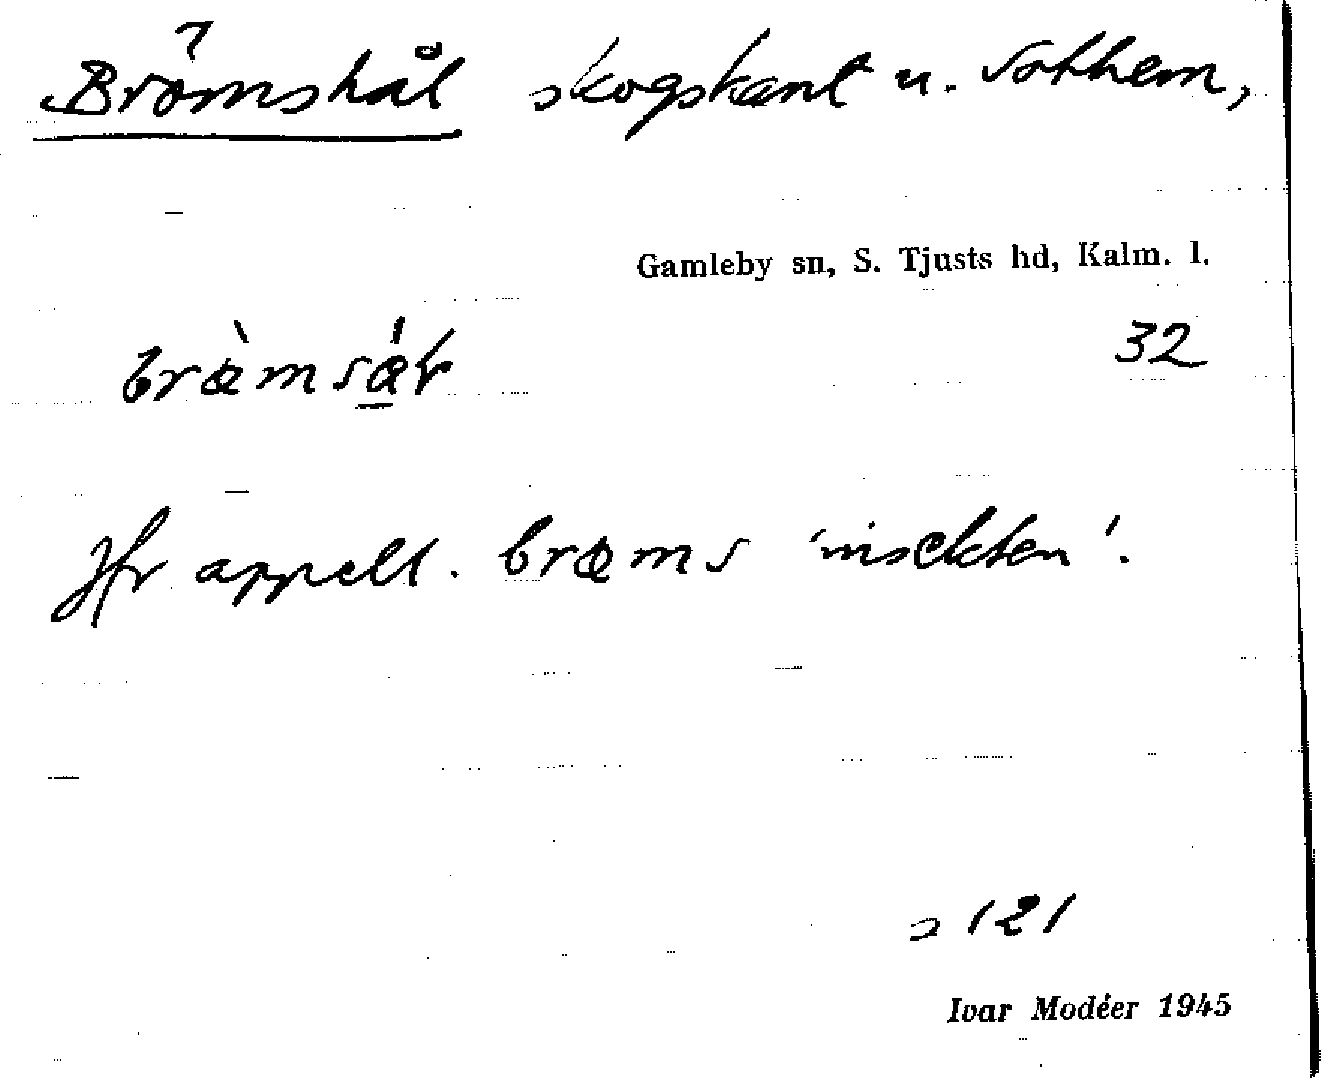 Brömshål skogskant u. Vothem,
Gamleby sn, S. Tjusts hd, Kalm. l.
bræ̀msǽł
32
Jfr appell. bræms 'insekten'.
s 121
Ivar Modéer 1945